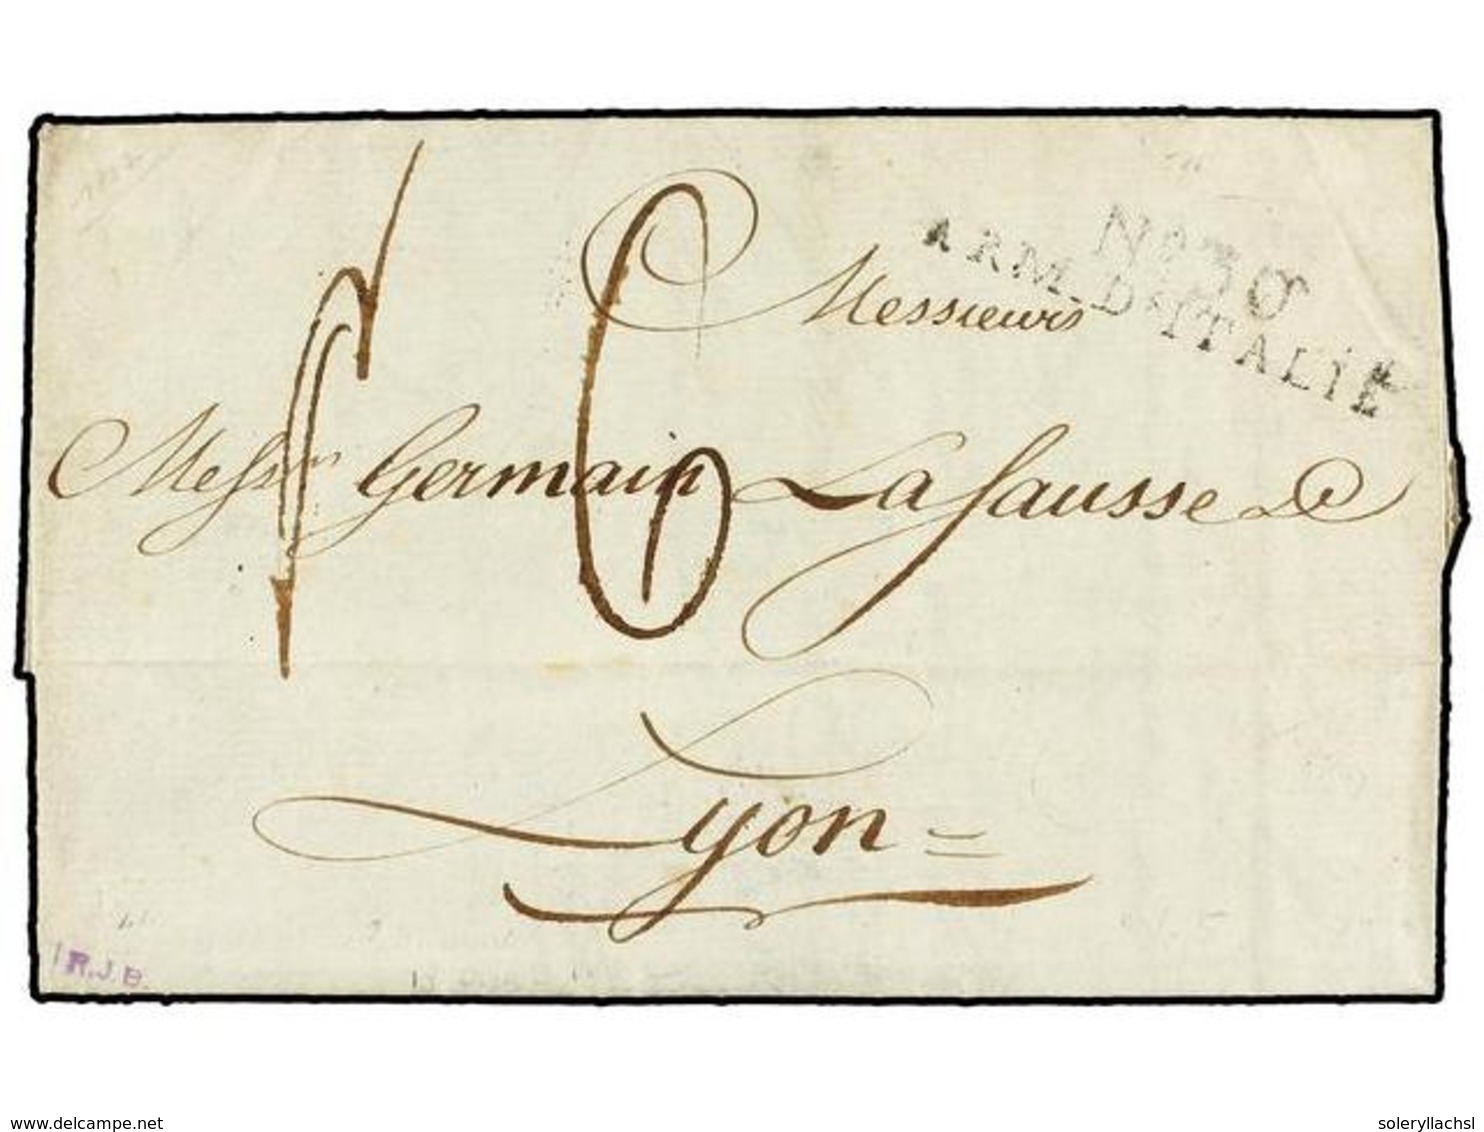 Nº 30
ARM. D'ITALIE
Messieurs
Messrs Germain Lafausse &
Lyon =
6
R.J.B.
www.delcampe.net
soleryllachsl